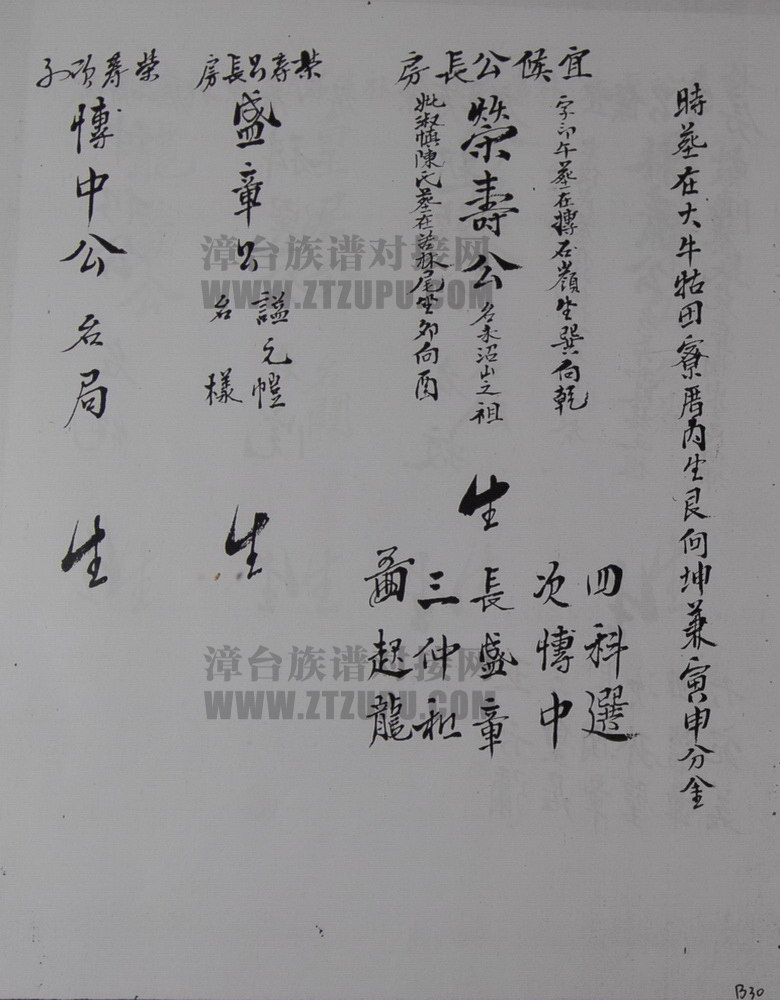 時墓在大牛牯田寮厝內坐艮向坤兼寅申分金
宜候公長房
字卯午墓在摶石嶺坐巽向乾
榮壽公 名 沼山之祖
妣淑慎陳氏墓在 林尾坐卯向酉
生
四科選
次愽中
長盛章
三仲和
起龍
榮壽公長房
盛章公 謚元愷
名樣
生
榮壽次子
愽中公 名局
生
漳台族谱对接网
WWW.ZTZUPU.COM
漳台族谱对接网
WWW.ZTZUPU.COM
B30